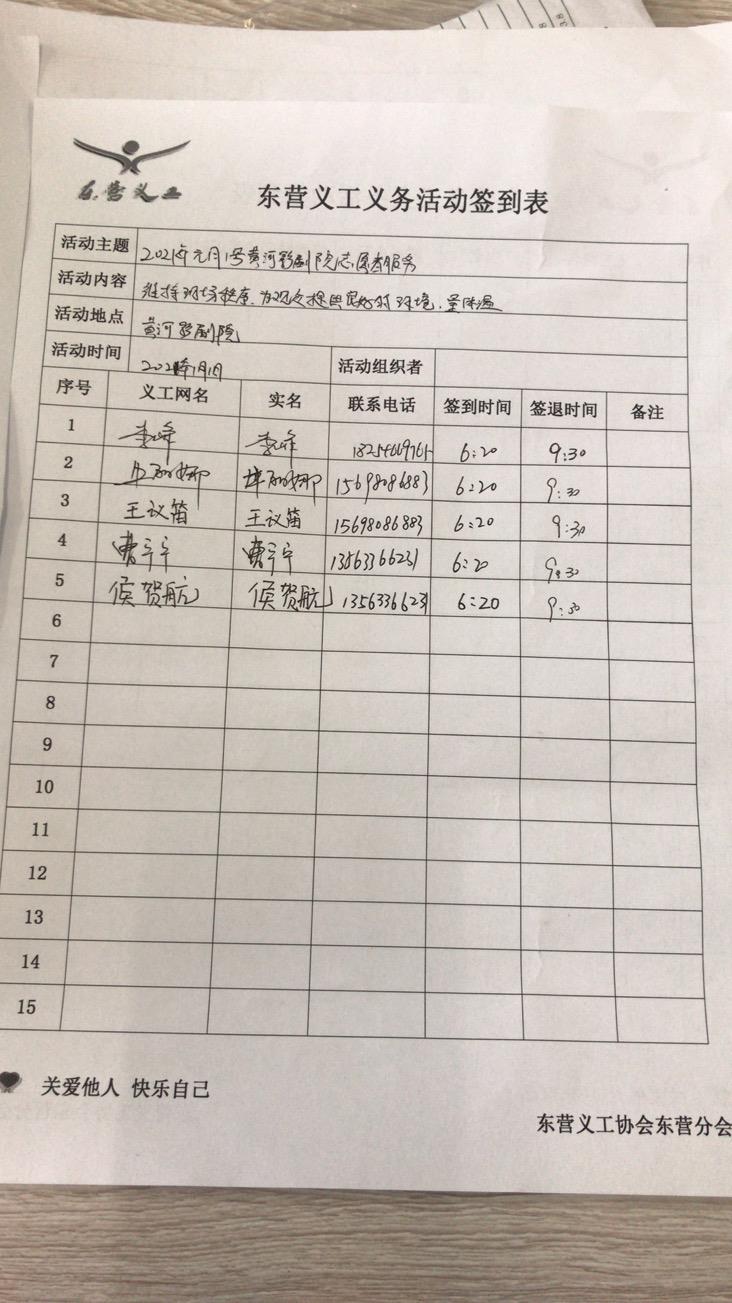 东营义工
东营义工义务活动签到表
活动主题 2021年元月1号黄河影剧院志愿者服务
活动内容 维持现场秩序,为观众提供良好的环境,量体温
活动地点 黄河影剧院
活动时间 2021年1月1日 活动组织者
序号 义工网名 实名 联系电话 签到时间 签退时间 备注
1 李峰 李峰 6:20 9:30
2 15698086883 6:20 9:30
3 王议笛 王议笛 15698086883 6:20 9:30
4 曹宁宁 曹宁宁 13563366231 6:20 9:30
5 侯贺航 侯贺航 13563366231 6:20 9:30
6
7
8
9
10
11
12
13
14
15
关爱他人 快乐自己
东营义工协会东营分会